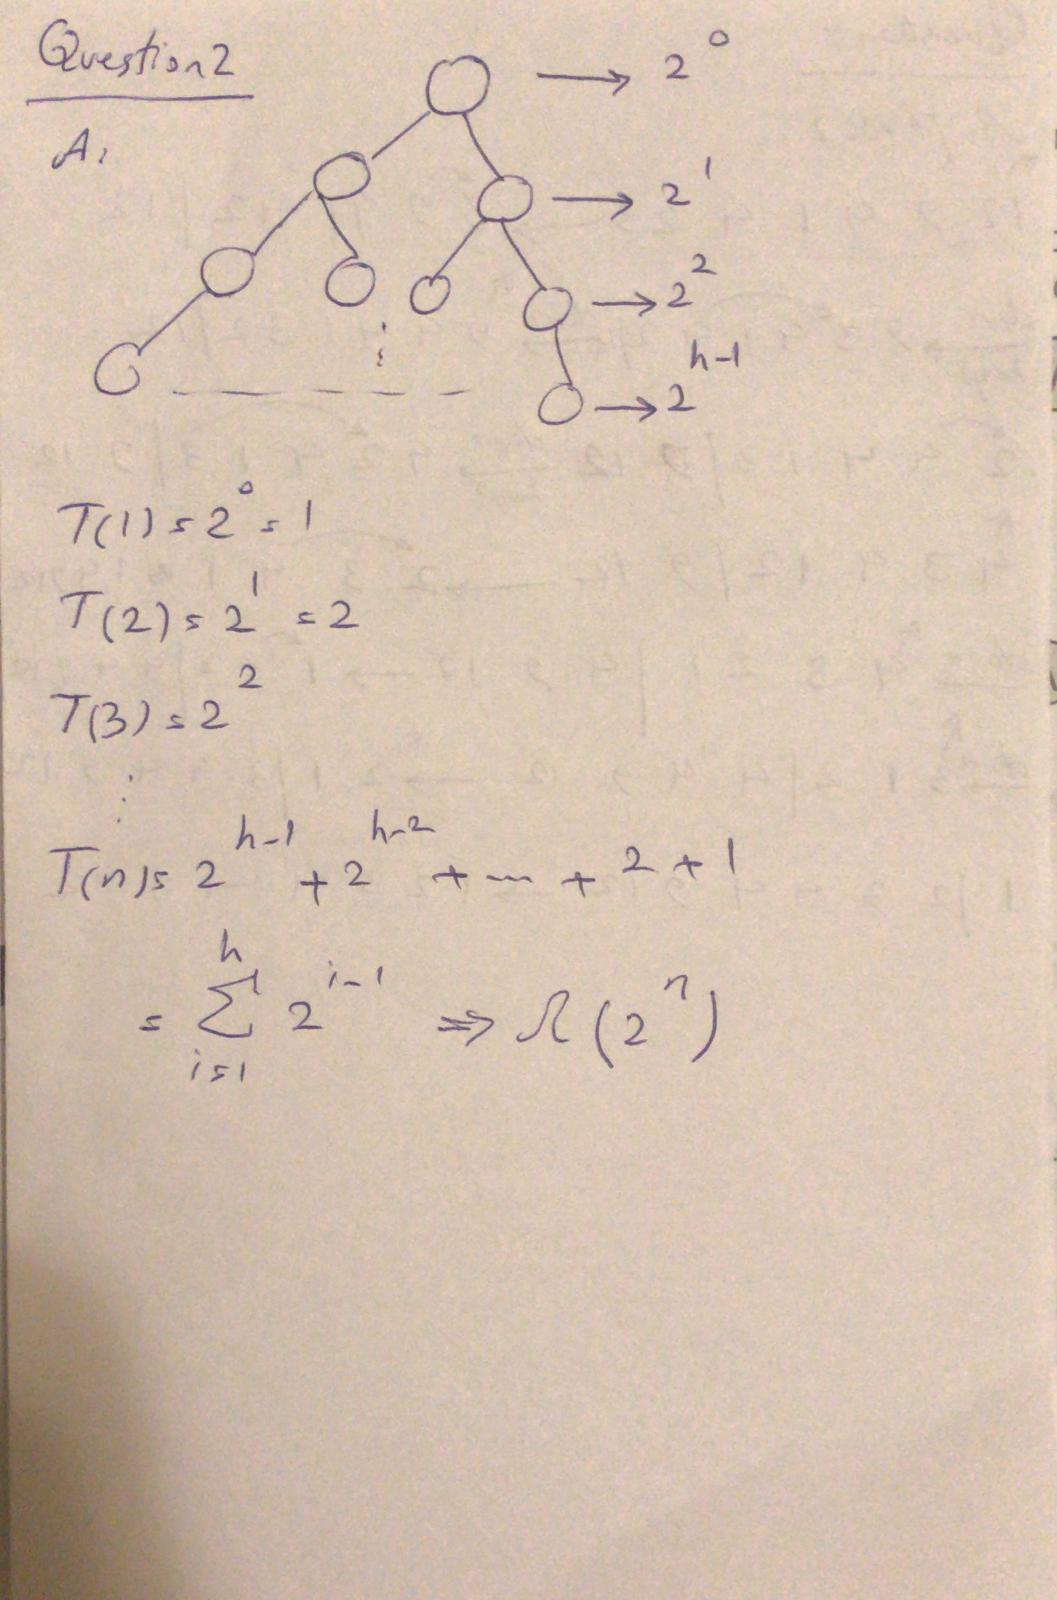 Question 2
A.
→ 2^0
→ 2^1
→ 2^2
→ 2^{h-1}
T(1) = 2^0 = 1
T(2) = 2^1 = 2
T(3) = 2^2
⋮
T(n) = 2^{h-1} + 2^{h-2} + ... + 2 + 1
= ∑_{i=1}^{h} 2^{i-1} ⇒ Ω(2^n)